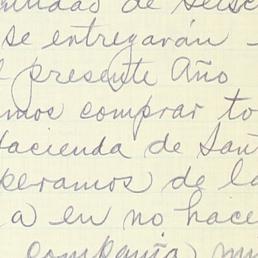 de seisc
se entregarán -
presente Año
mos comprar to
Hacienda de San
peramos de la
a en no hace
compañia mu